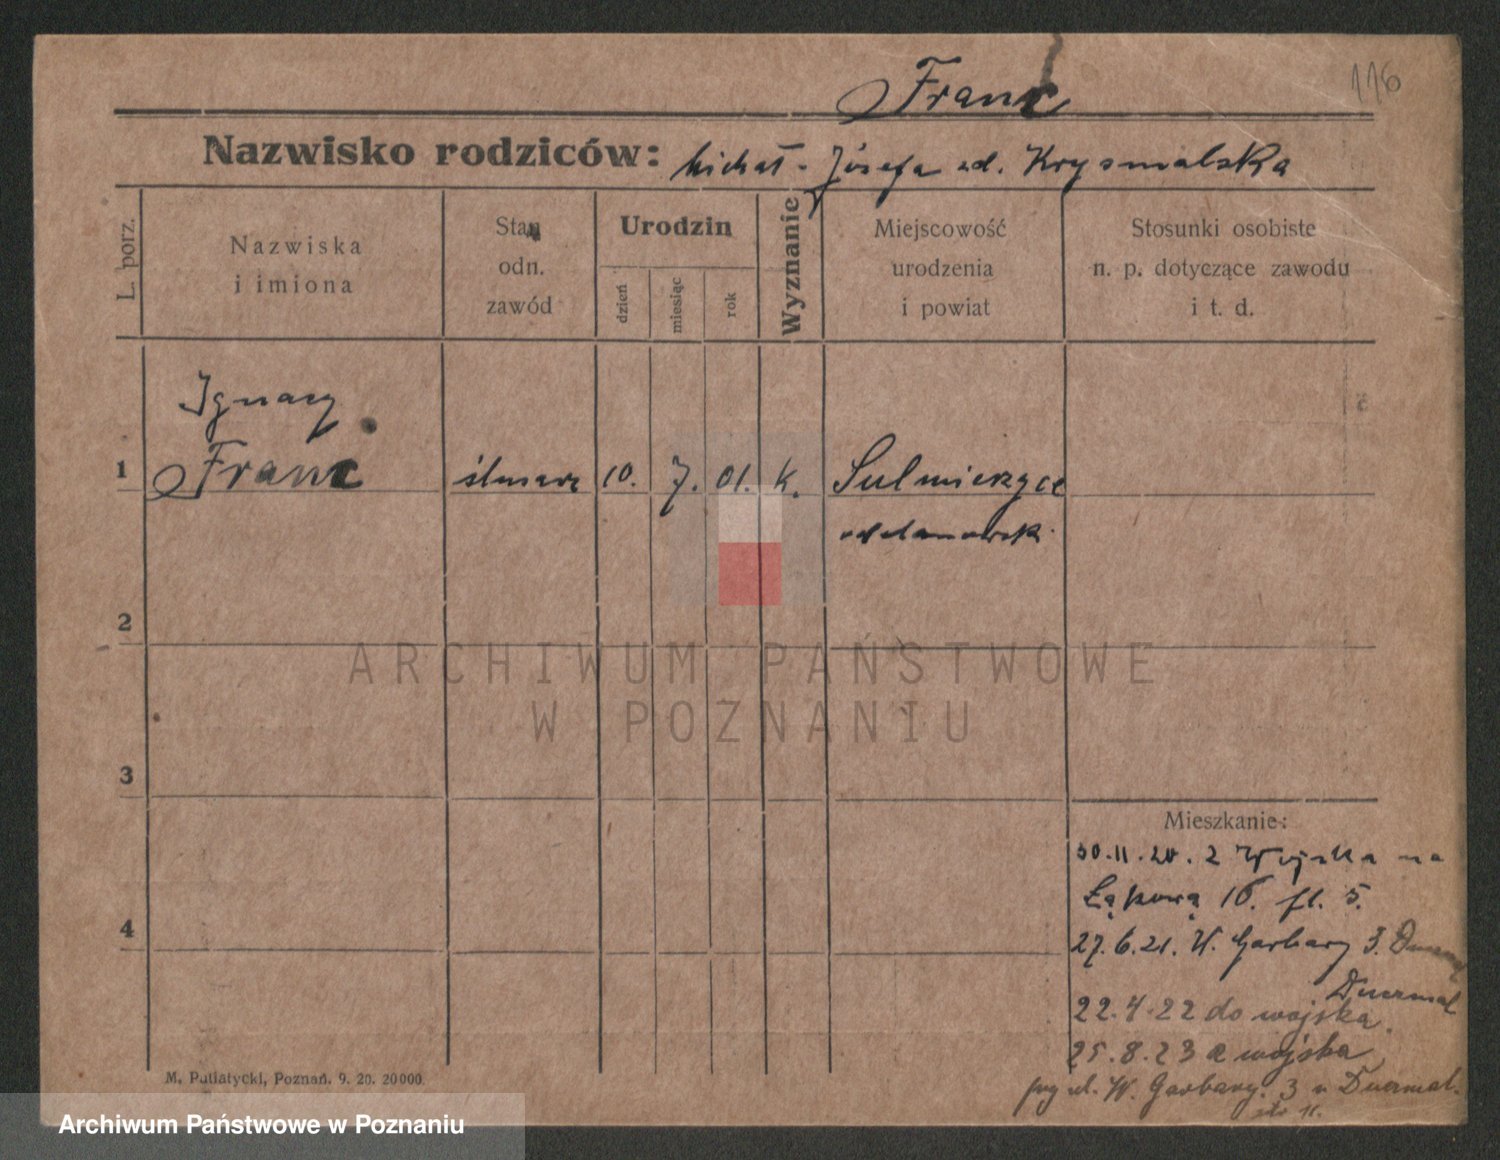 116
Franc
Nazwisko rodziców: Michał - Józefa zd. Krysmalska
L. porz.
Nazwiska
i imiona
Stan
odn.
zawód
Urodzin
dzień
miesiąc
rok
Wyznanie
Miejscowość
urodzenia
i powiat
Stosunki osobiste
n. p. dotyczące zawodu
i t. d.
Ignacy
1 Franc ślusarz 10. 7. 01. k. Sulmierzyce
odolanowski
2
ARCHIWUM PAŃSTWOWE
W POZNANIU
3
Mieszkanie:
30.11.20. z Wojska na
Łąkową 16. fl. 5.
4
27.6.21. W. Garbary 3.
Duermal
22.4.22 do wojska
25.8.23 z wojska
przy ul. W. Garbary. 3 u Duermal.
M. Putiatycki, Poznań. 9. 20. 20000.
Archiwum Państwowe w Poznaniu